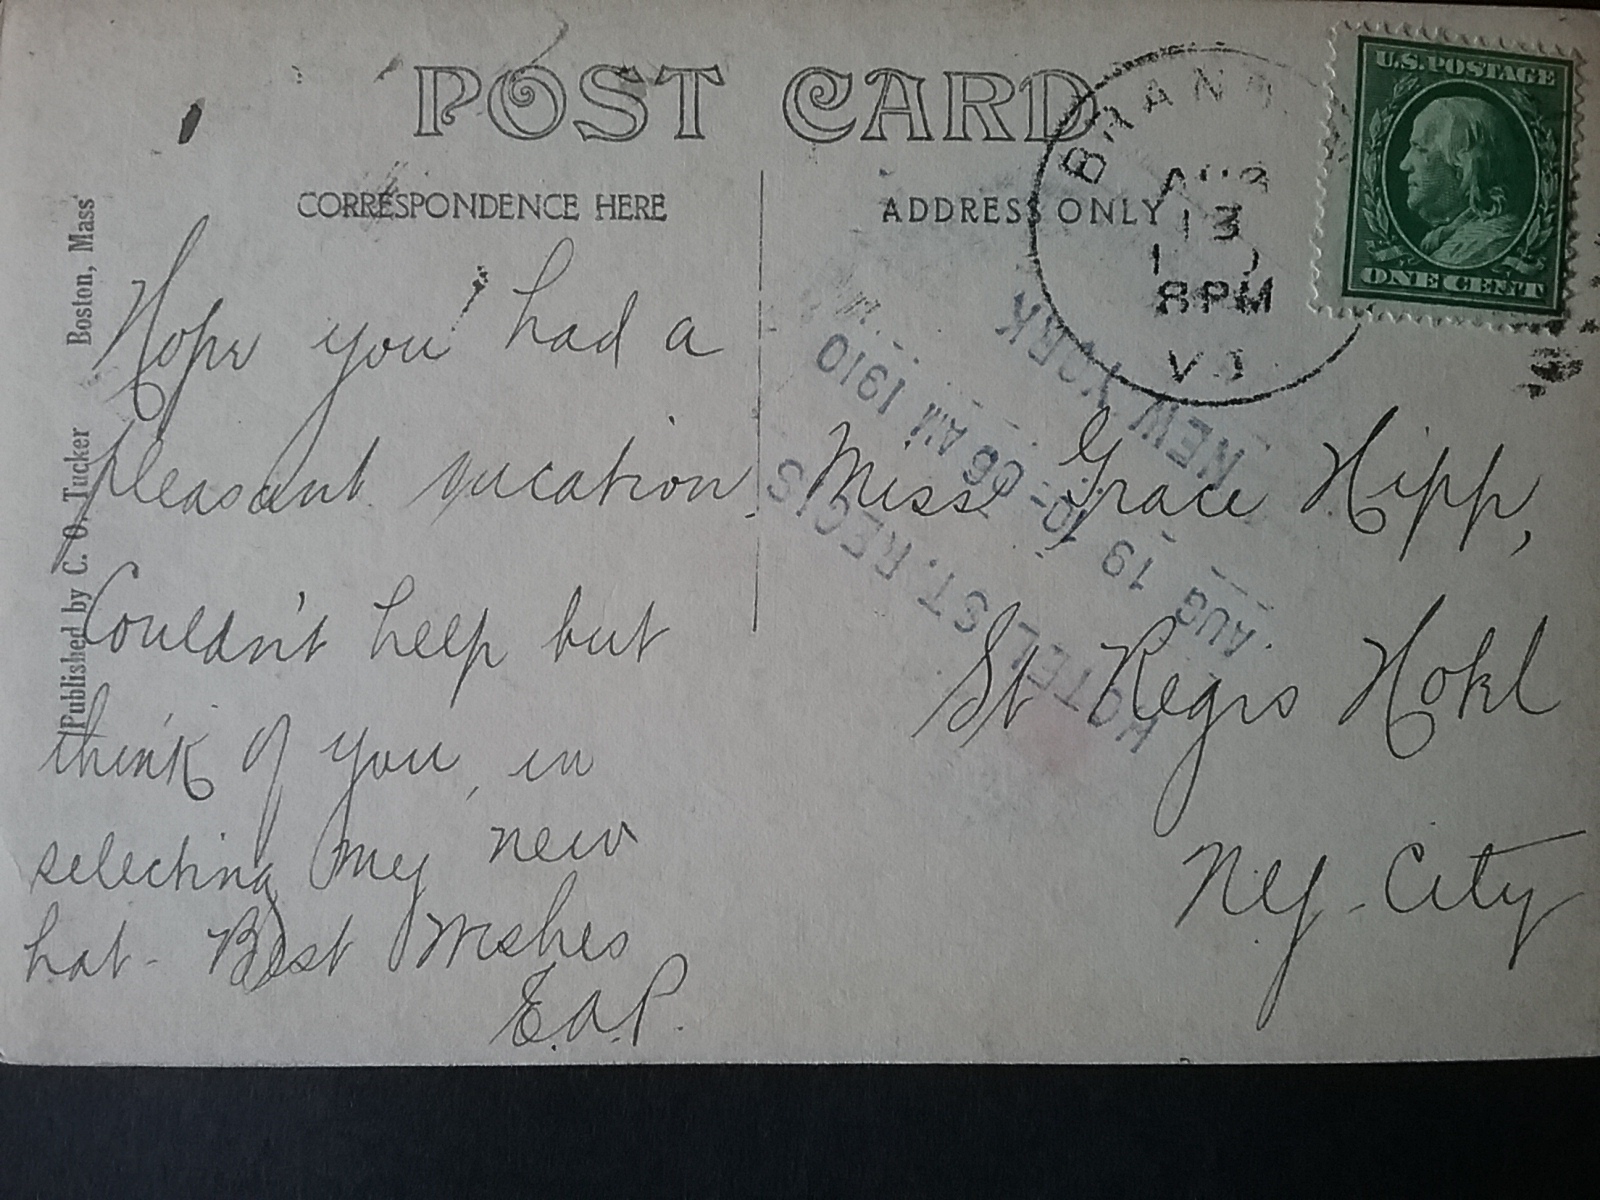 POST CARD
CORRESPONDENCE HERE
ADDRESS ONLY
Published by C. O. Tucker Boston, Mass
U.S. POSTAGE
ONE CENT
AUG
13
8 PM
HOTEL ST. REGIS
AUG 19 10-06 AM 1910
NEW YORK
Hope you had a
pleasant vacation.
Couldn't help but
think of you, in
selecting my new
hat - Best Wishes
E.A.P.
Miss Grace Hipp,
St Regis Hotel
N.Y. City